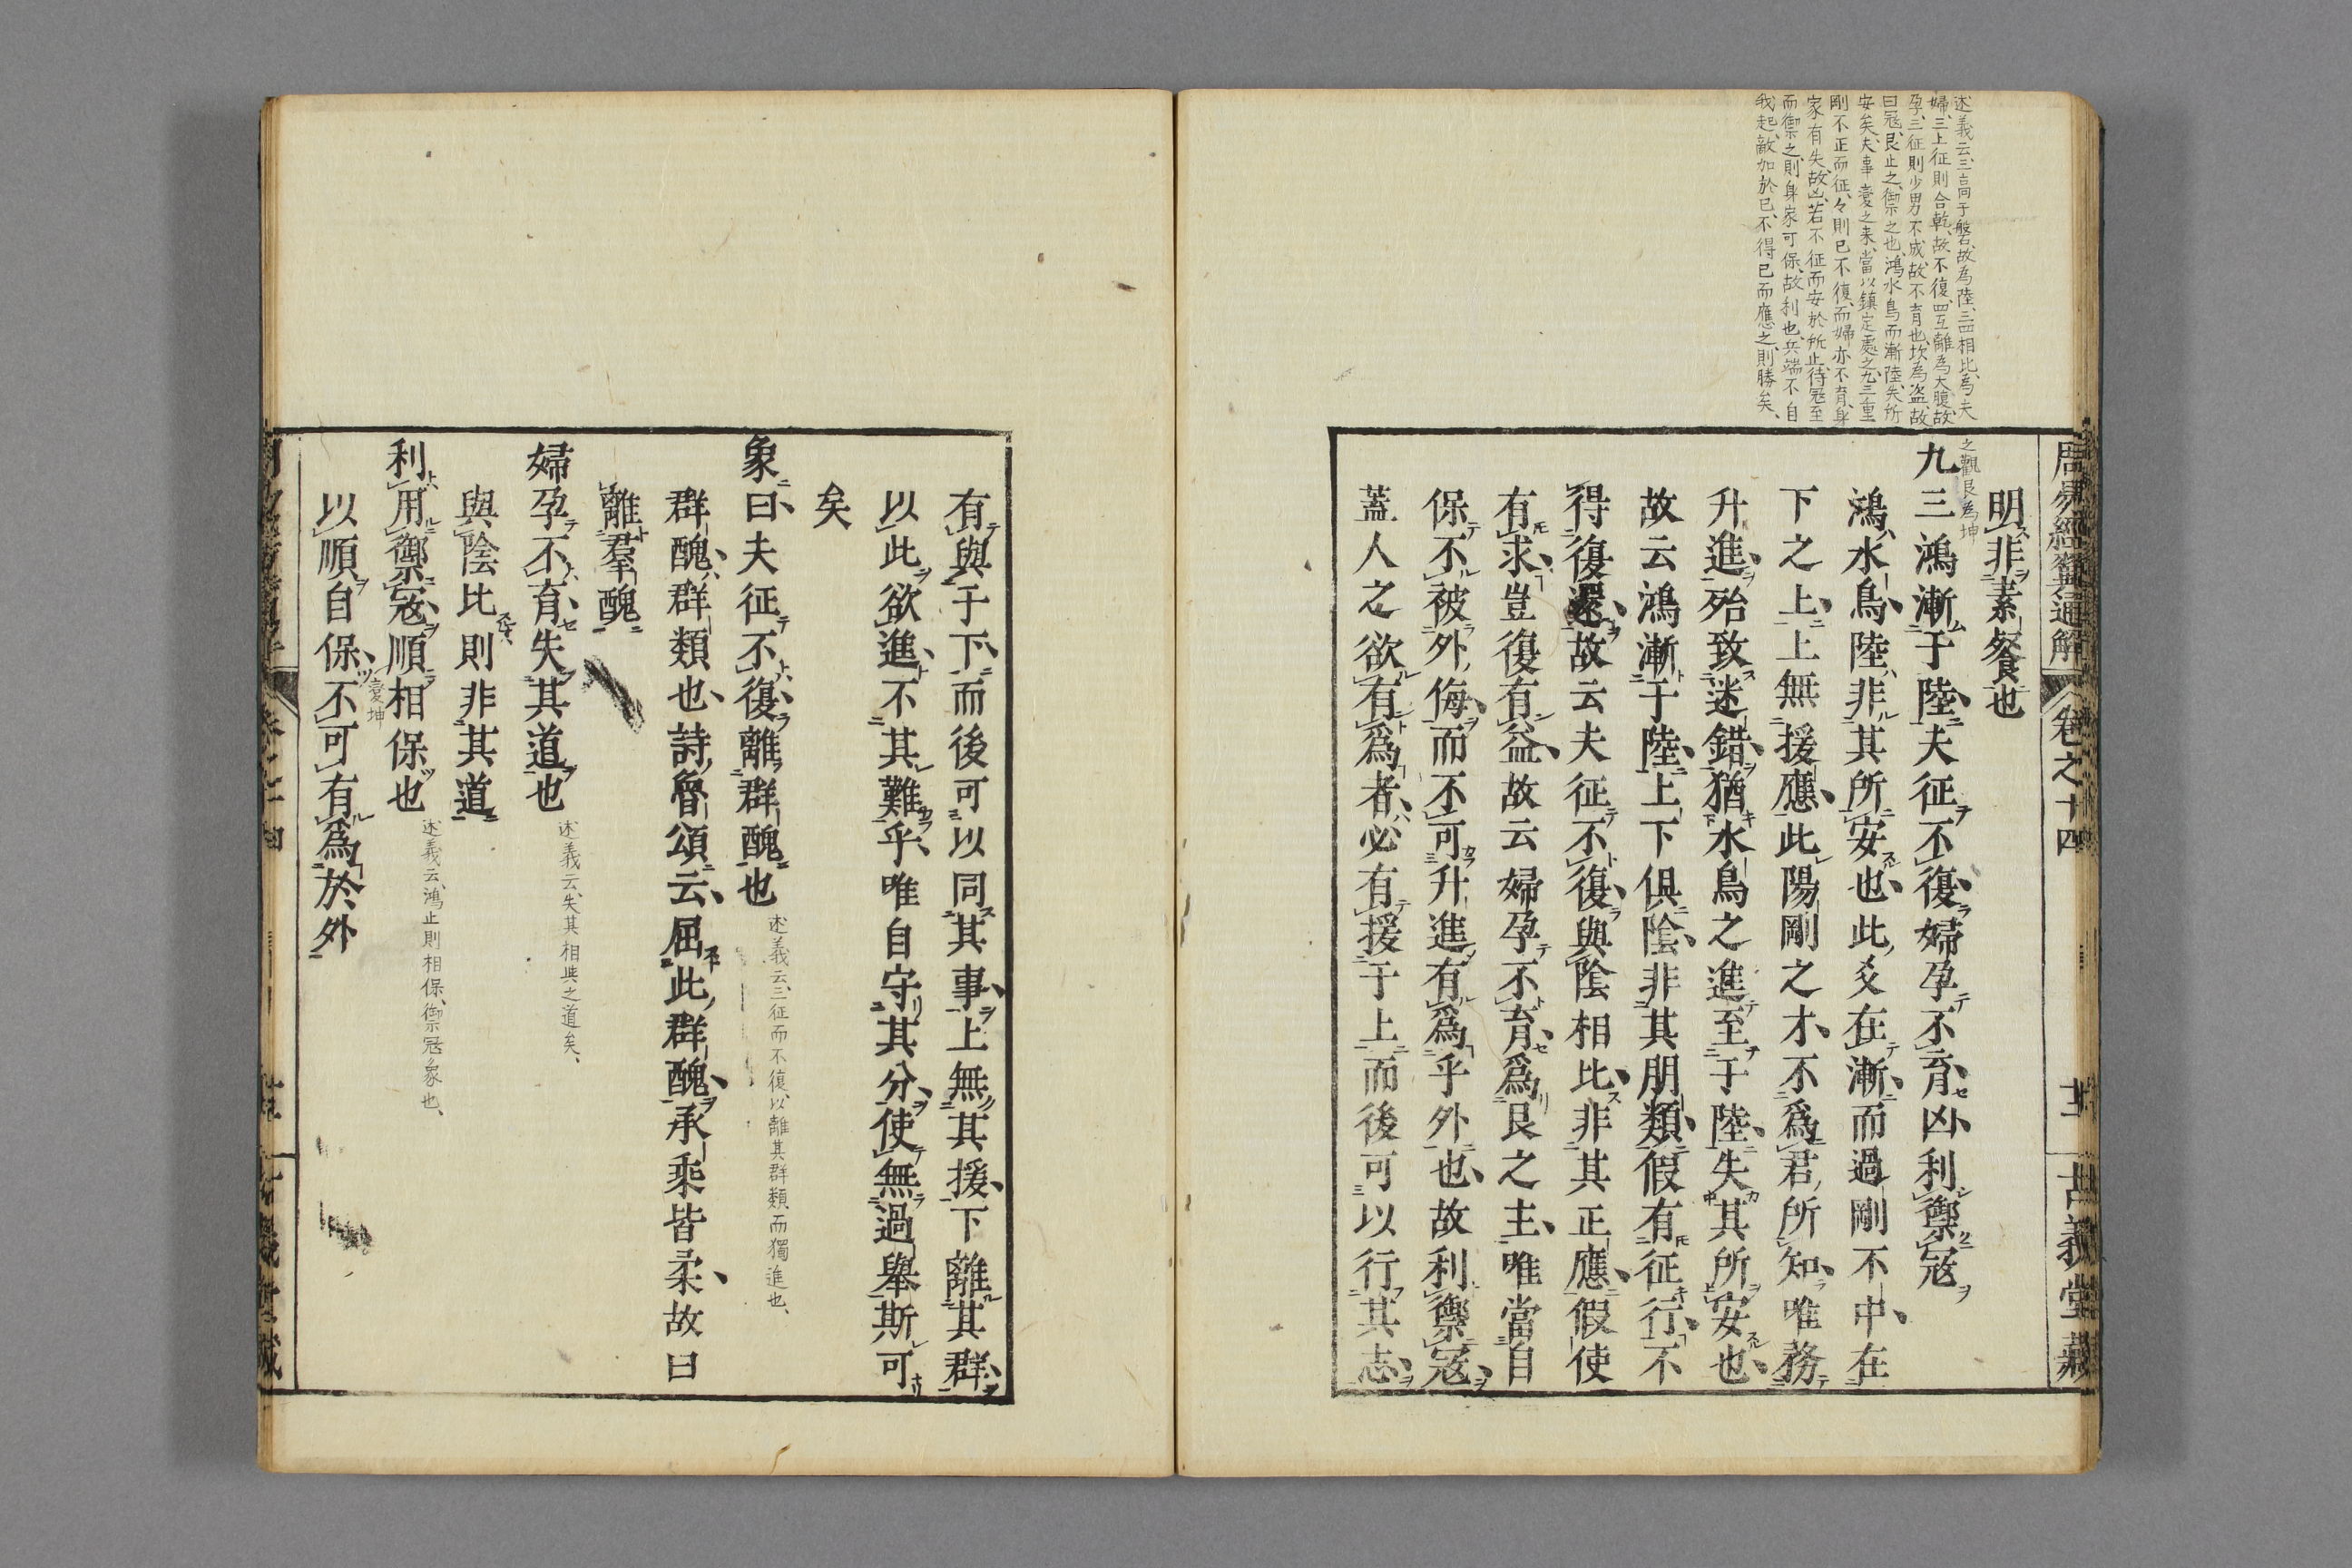 述義云、三言同于磐、故為陸、三四相比、為夫
婦、三上征則合乾、故不復、四互離為大腹、故
孕、三征則少男不成、故不育也、坎為盗、故
曰冦、艮止之、禦之也、鴻水鳥而漸陸失所
安矣、夫事変之来、當以鎮定處之、九三重
剛不正而征、々則已不復、而婦亦不育、身
家有失、故凶、若不征而安於所止、待冦至
而禦之、則身家可保、故利也、兵端不自
我起、敵加於已、不得已而應之、則勝矣、
周易經翼通解 卷之十四 古義堂藏
明非素餐也
之觀艮為坤
九三鴻漸于陸夫征不復婦孕不育凶利禦寇
鴻水鳥陸非其所安也此爻在漸而過剛不中在
下之上上無援應此陽剛之才不爲君所知唯務
升進殆致迷錯猶水鳥之進至于陸失其所安也
故云鴻漸于陸上下俱陰非其朋類假有征行不
得復還故云夫征不復與陰相比非其正應假使
有求豈復有益故云婦孕不育爲艮之主唯當自
保不被外侮而不可升進有爲乎外也故利禦寇
蓋人之欲有爲者必有援于上而後可以行其志
有與于下而後可以同其事上無其援下離其群
以此欲進不其難乎唯自守其分使無過舉斯可
矣
象曰夫征不復離群醜也
述義云、三征而不復、以離其群類而獨進也、
群醜群類也詩魯頌云屈此群醜承乘皆柔故曰
離羣醜
婦孕不育失其道也
述義云、失其相與之道矣、
與陰比則非其道
利用禦寇順相保也
述義云、鴻止則相保、禦冦象也、
変坤
以順自保不可有爲於外